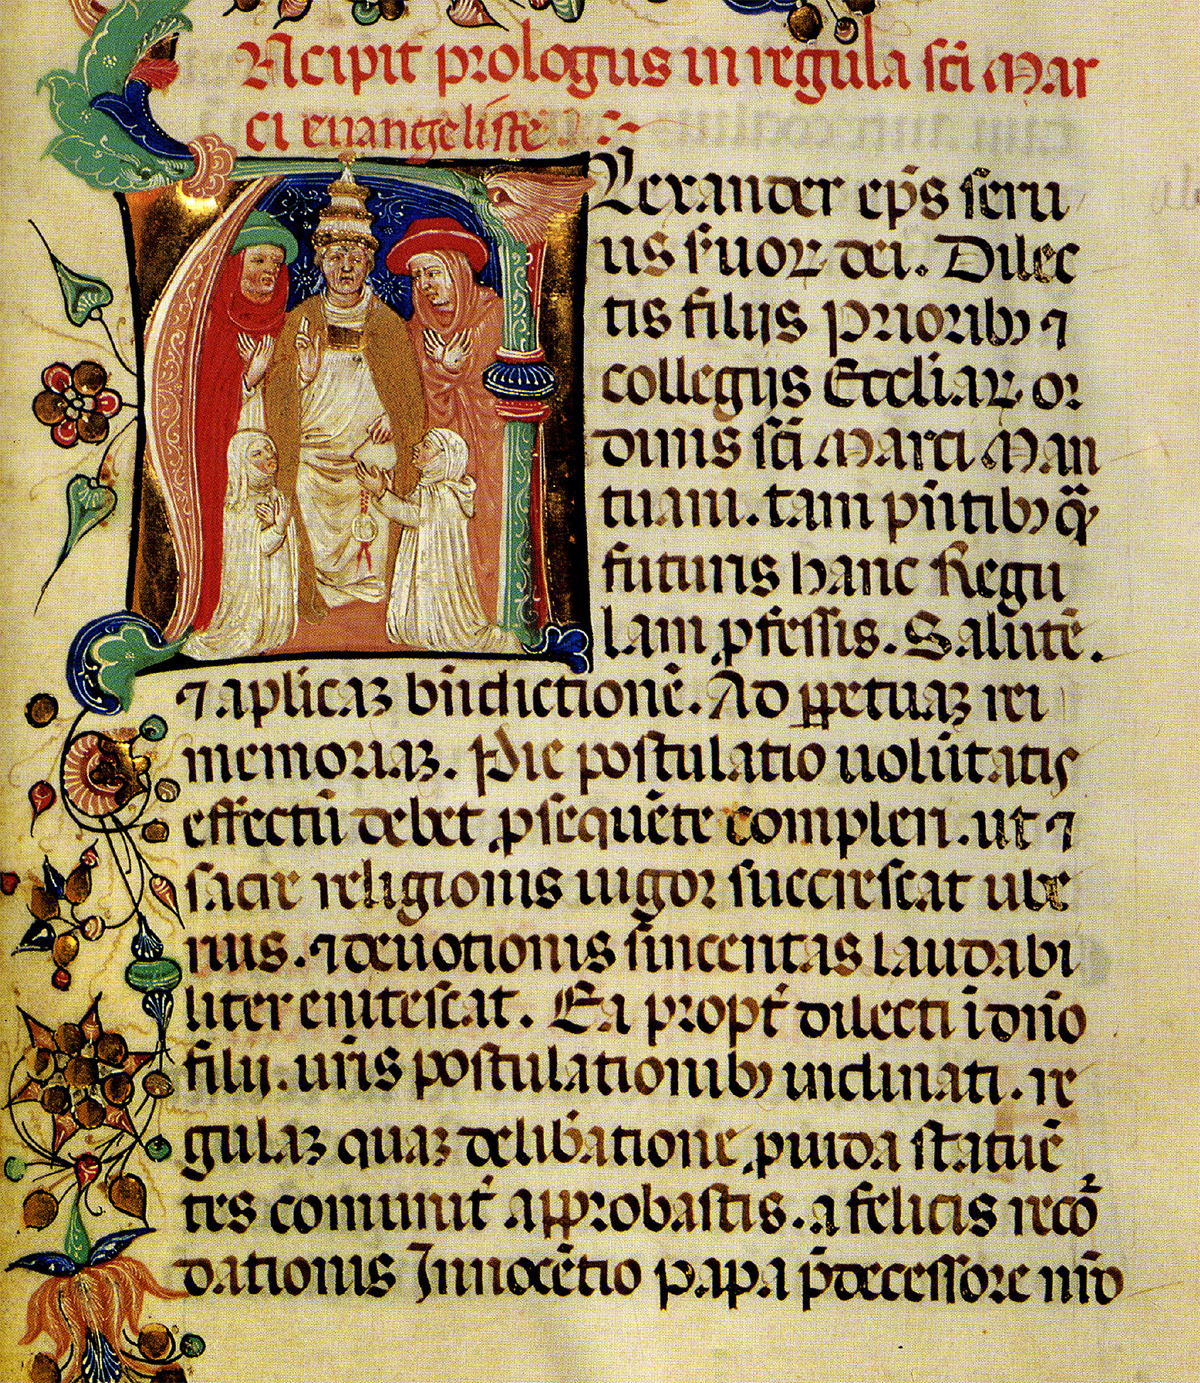 Incipit prologus in regula sc̄i Mar
ci euangeliste
Alexander ep̄s seru
us suoꝝ dei. Dilec
tis filijs prioribꝫ ⁊
collegijs Eccl̄iaꝝ or
dinis sc̄i Marci Man
tuani. tam p̄ntibꝫ q̄
futuris hanc Regu
lam ꝓfessis. Salutē.
⁊ aplicaꝫ bn̄dictionē. Ad ꝑpetuaꝫ rei
memoriaꝫ. Pie postulatio uolūtatis
effectū debet ꝓsequēte compleri. ut ⁊
sacre religionis uigor succrescat ube
rius. ⁊ deuotionis sinceritas laudabi
liter enitescat. Ea propt̄ dilecti ī dn̄o
filij. ur̄is postulationibꝫ inclinati. re
gulaꝫ quaꝫ delibatione ꝓuida statuē
tes comunit̄ approbastis. a felicis reco
dationis Innocētio papa p̄decessore nr̄o